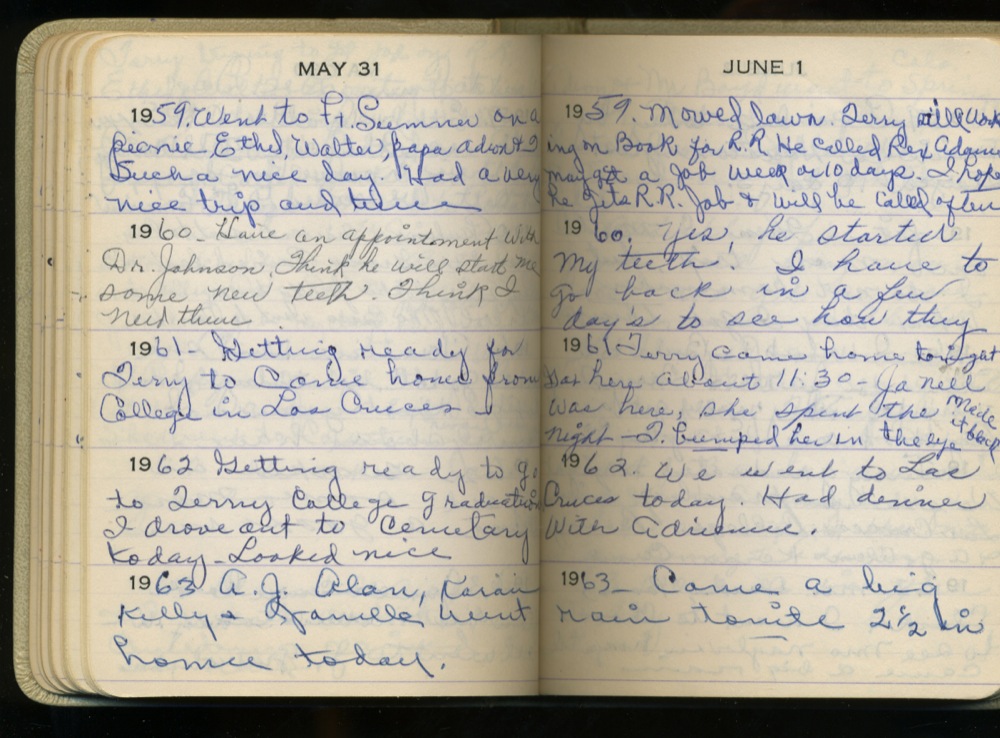 MAY 31
1959. Went to Ft. Sumner on a
picnic, Ethel, Walter, papa Adron & I
Such a nice day. Had a very
nice trip and time
1960 - Have an appointment with
Dr. Johnson, Think he will start me
some new teeth. Think I
need them
1961 - Getting ready for
Terry to Come home from
College in Las Cruces -
1962 Getting ready to go
to Terry College graduation
I drove out to Cemetary
today - Looked nice
1963 A.J. Alan, Karan
Kelly & went
home today.
JUNE 1
1959. Mowed lawn. Terry still work
ing on Book for R.R He called Rex Adams
may get a job week or 10 days. I hope
he gets R.R. Job & will be called often
1960. Yes, he started
My teeth. I have to
go back in a few
day's to see how they
1961 Terry came home tonight
Was here about 11:30 - Ja Nell
was here, she spent the
night - I bumped her in the eye
made
it black
1962. We went to Las
Cruces today Had dinner
with Adrienne.
1963 - Came a big
rain tonite 2 1/2 in